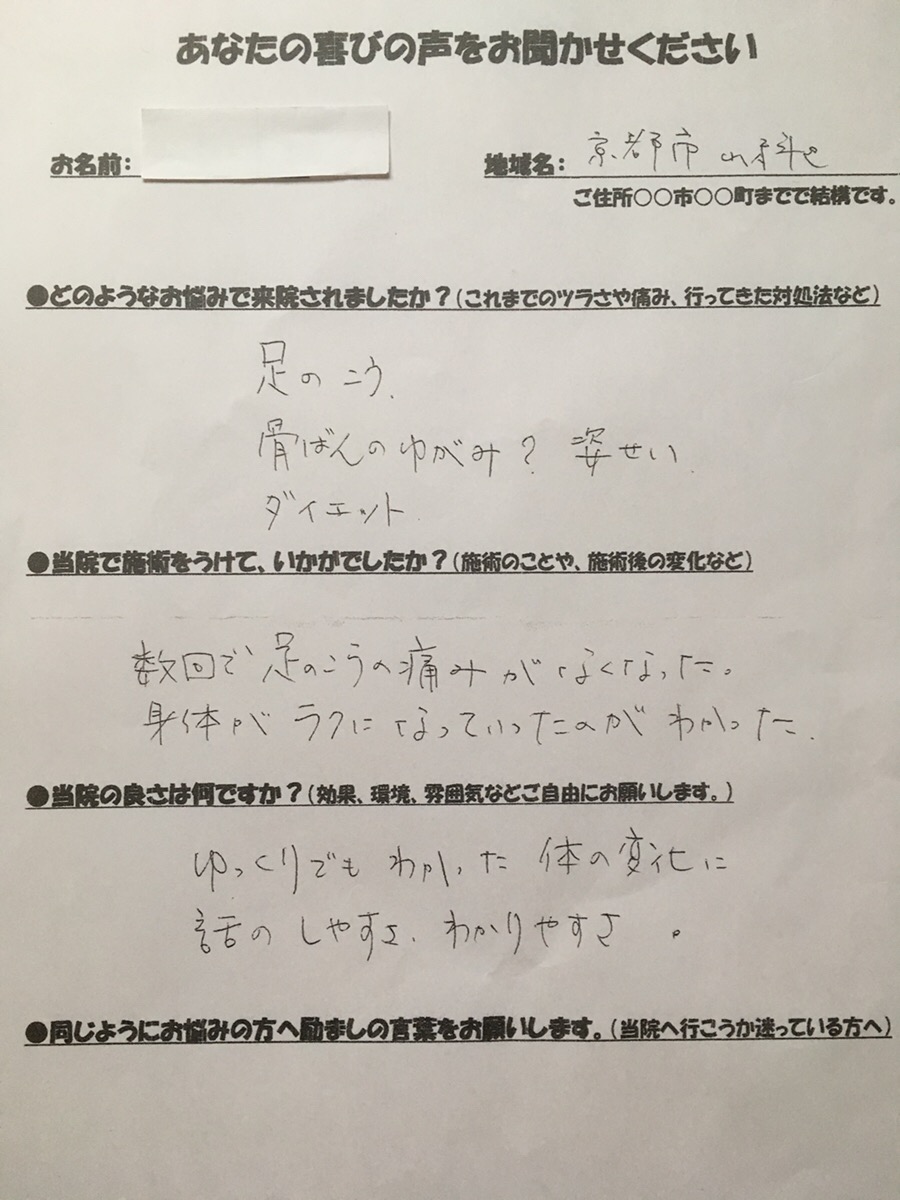 あなたの喜びの声をお聞かせください
お名前：
地域名：京都市 山科区
ご住所○○市○○町までで結構です。
●どのようなお悩みで来院されましたか？（これまでのツラさや痛み、行ってきた対処法など）
足のこう、
骨ばんのゆがみ？ 姿せい、
ダイエット
●当院で施術をうけて、いかがでしたか？（施術のことや、施術後の変化など）
数回で足のこうの痛みがなくなった。
身体がラクになっていったのがわかった。
●当院の良さは何ですか？（効果、環境、雰囲気などご自由にお願いします。）
ゆっくりでもわかった体の変化に
話のしやすさ、わかりやすさ。
●同じようにお悩みの方へ励ましの言葉をお願いします。（当院へ行こうか迷っている方へ）